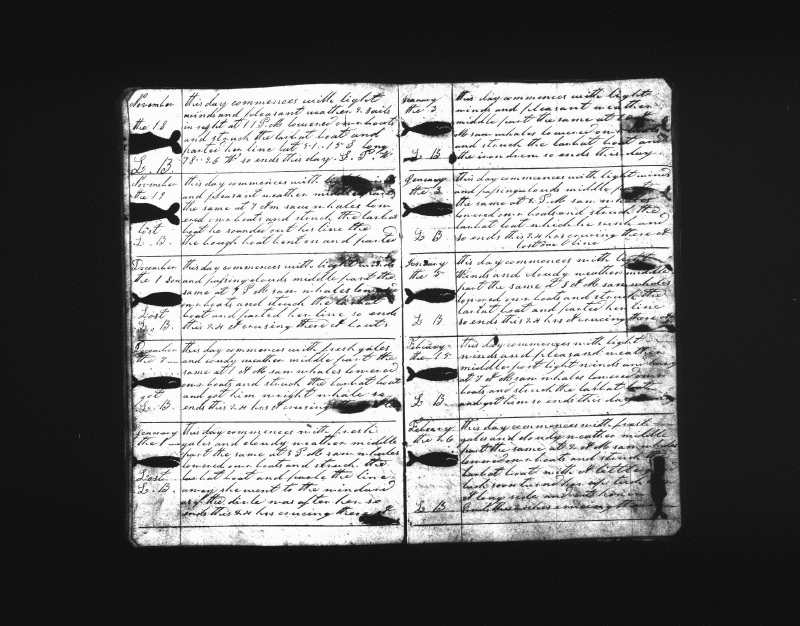 November
the 18
L. B.
this day commences with light
winds and pleasant weather 2 sails
in sight at 11 P.M lowered our boats
and struck the larbat boat and
parted her line lat
so ends this day
November
the 19
lost
L. B.
this day commences with
and pleasant weather middle
the same at 7 A m saw whales low
ered our boats and struck the larbat
boat he sounded out his line the
the bough boat bent on and parted
December
the 1
Lost
L. B.
this day commences with light winds
and passing clouds middle part the
same at 9 P M saw whales lowered
our boats and struck the larbat
boat and parted her line so ends
this 24 crusing there
December
the 7
got
L. B.
this day commences with fresh gales
and coudy weather middle part the
same at 1 P M saw whales lowered
our boats and struck the larbat boat
and got him wright whale so
ends this 24 hrs crusing
January
the 1
Lost
L. B.
this day commences with fresh
gales and cloudy weather middle
part the same at 3 P M saw whales
lowered our boats and struck the
larbat boat and parted the line
away she went to the windward
as if the divle was after her so
ends this 24 hrs crucing there
January
the 3
L B
this day commences with light
winds and pleasant weather
middle part the same at
M saw whales lowered our boats
and struck the larbat boat and
so ends this day
January
the 3
L B
this day commences with light winds
and passing clouds middle part
the same at 2 P M saw whales
lowered our boats and struck the
larbat boat which he sunk and
so ends this 24 hrs crucing there
lost one line
January
the 5
L B
this day commences with light
winds and cloudy weather middle
part the same at 3 P M saw whales
lowered our boats and struck the
larbat boat and parted her line
so ends this 24 hrs crucing there
February
the 15
L B
this day commences with light
winds and pleasand weather
middle part light winds and
at 7 A M saw whales lowered our
boats and struck the larbat boat
and got him so ends this day
February
the 26
L B
this day commences with fresh
gales and cloudy weather middle
part the same at 2 P M saw whales
lowered our boats and struck
larbat boat with A little
back soon turned her up took
A long side and cut